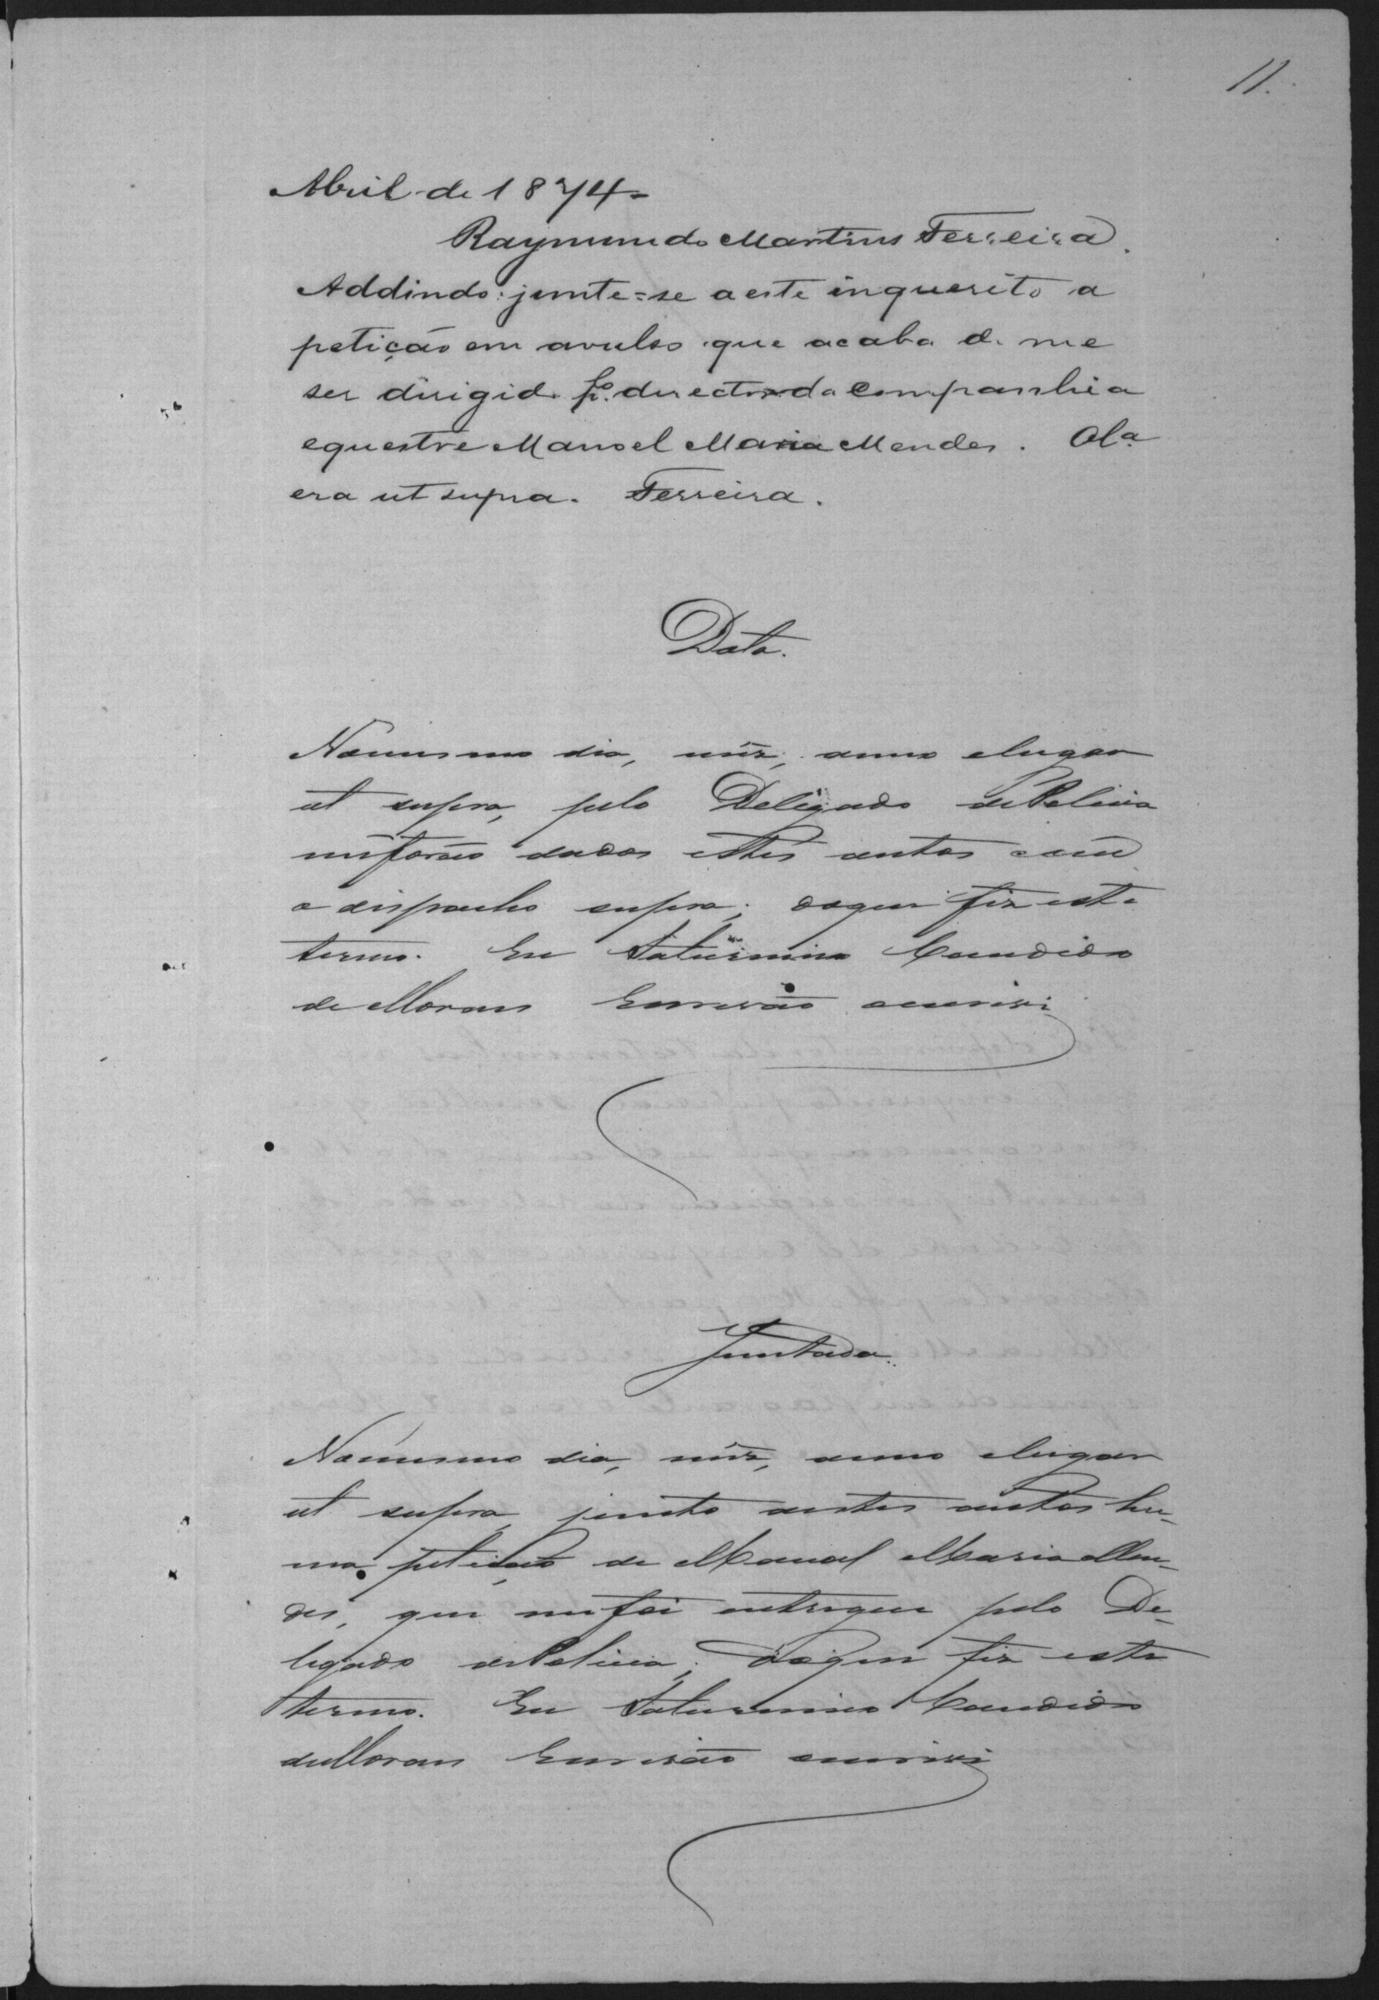 11.
Abril de 1874=
Raymundo Martins Ferreira.
Addindo: junte=se a este inquerito a
petição em avulso que acaba de me
ser dirigida pº director da Companhia
equestre Manoel Maria Mendes.
era ut supra. Ferreira.
Data.
No mesmo dia, mêz, anno e lugar
ut supra, pelo Delegado de Policia
me forão dados estes autos com
o despacho supra; do que fiz este
termo. Eu Saturnino Candido
de Moraes Escrivão escrivi
Juntada.
No mesmo dia, mêz, anno e lugar
ut supra, junto a estes autos hu-
ma petição de Manoel Maria Men-
des, que me foi entregue pelo De-
legado de Policia; do que fiz este
termo. Eu Saturnino Candido
de Moraes Escrivão escrivi